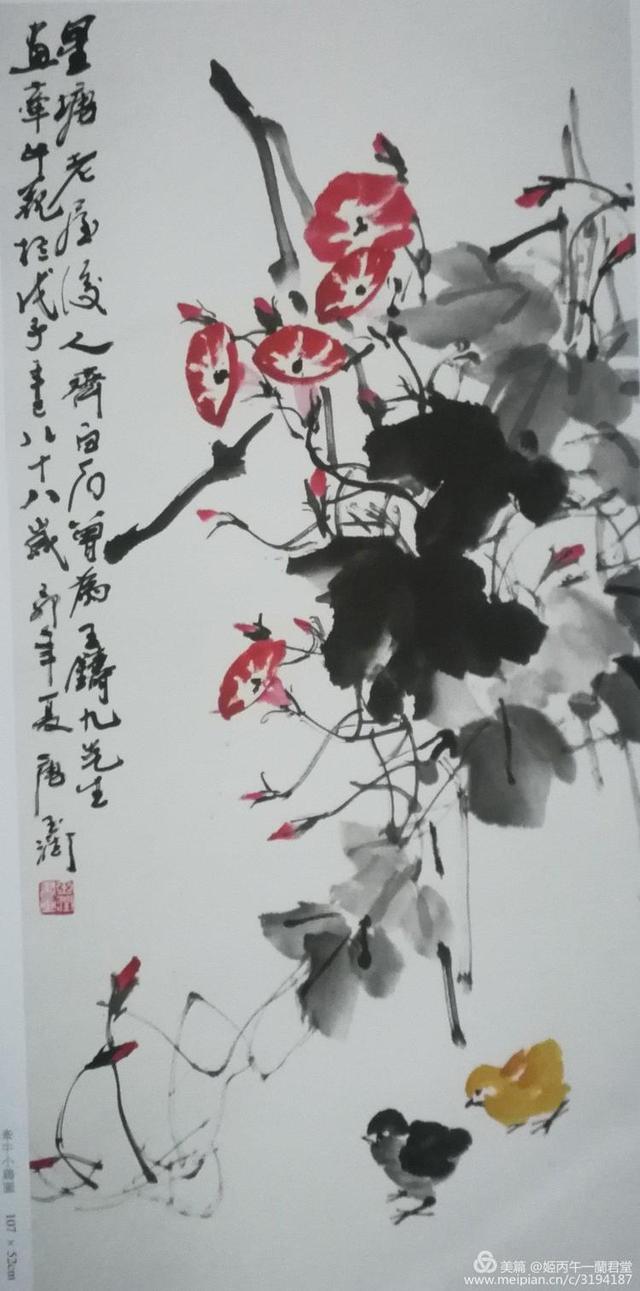 星塘老屋後人齊白石曾為王鑄九先生
畫牽牛花於戊子年已八十八歲 卯年夏 唐玉衡
牽牛小鷄圖 107 × 52cm
美篇 @姬丙午一蘭君堂
www.meipian.cn/c/3194187